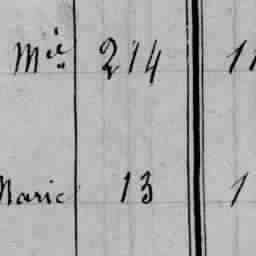 Mie 214 11
Marie 13 1